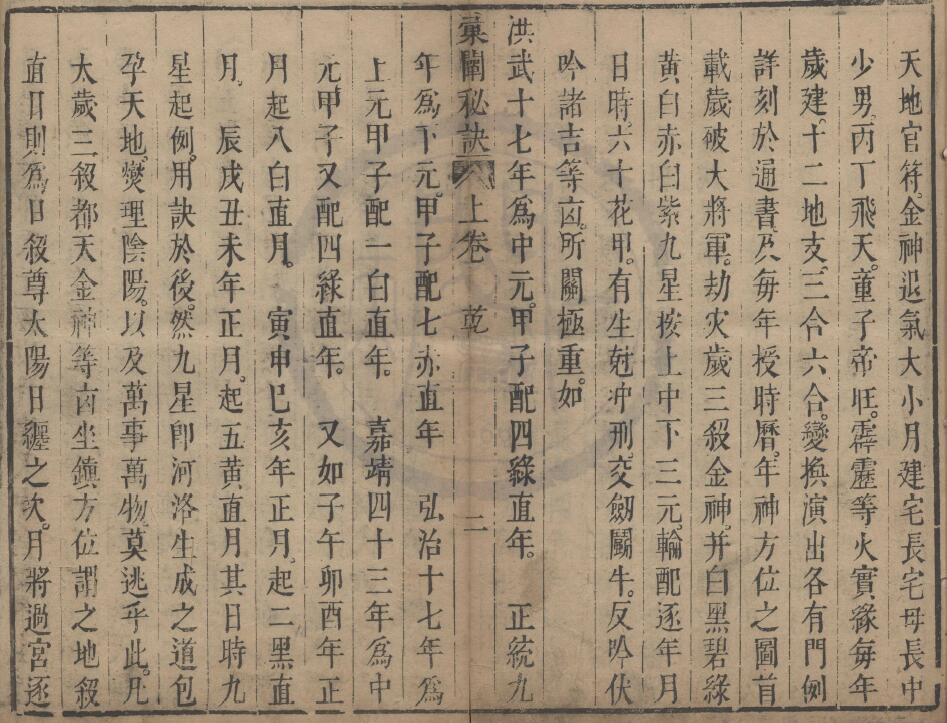 天地官符。金神退氣大小月建宅長宅母長中
少男。丙丁飛天。童子帝旺。霹靂等火實緣每年
歲建。十二地支。三合六合。變換演出各有門例
詳刻於通書及每年授時曆。年神方位之圖首
載歲破大將軍。劫灾歲三殺金神。并白黑碧綠
黃白赤白紫九星按上中下三元。輪配逐年月
日時。六十花甲。有生尅冲刑。交劔鬭牛。反吟伏
吟諸吉等凶。所關極重。如
洪武十七年爲中元。甲子配四綠直年。　正統九
彙闡秘訣　上卷　乾　二
年爲下元。甲子配七赤直年　弘治十七年爲
上元甲子配一白直年。　嘉靖四十三年爲中
元甲子又配四綠直年。　又如子午卯酉年正
月起八白直月。　寅申巳亥年正月。起二黑直
月。　辰戌丑未年正月。起五黃直月其日時九
星起例。用訣於後。然九星卽河洛生成之道包
孕天地。燮理陰陽。以及萬事萬物。莫逃乎此。凡
太歲三殺都天金神等凶坐鎮方位謂之地殺
直日則爲日殺尊太陽日纏之次。月將過宮逐